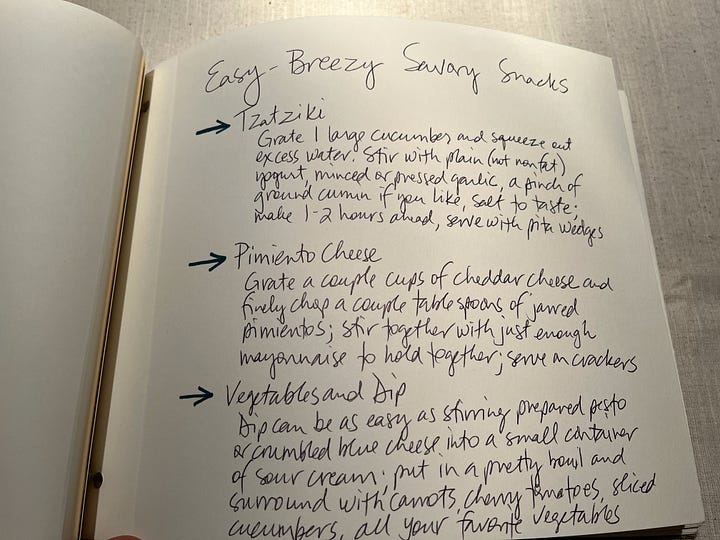 Easy-Breezy Savory Snacks
→ Tzatziki
Grate 1 large cucumber and squeeze out
excess water. Stir with plain (not nonfat)
yogurt, minced or pressed garlic, a pinch of
ground cumin if you like, salt to taste;
make 1-2 hours ahead, serve with pita wedges
→ Pimiento Cheese
Grate a couple cups of cheddar cheese and
finely chop a couple tablespoons of jarred
pimientos; stir together with just enough
mayonnaise to hold together; serve on crackers
→ Vegetables and Dip
Dip can be as easy as stirring prepared pesto
or crumbled blue cheese into a small container
of sour cream; put in a pretty bowl and
surround with carrots, cherry tomatoes, sliced
cucumbers, all your favorite vegetables